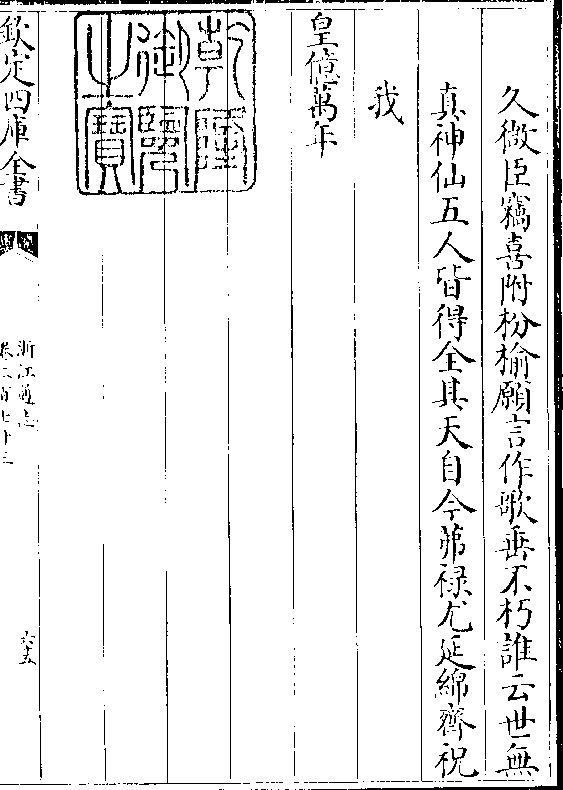 久微臣竊喜附枌榆願言作歌垂不朽誰云世無
真神仙五人皆得全其天自今茀禄尤延綿齊祝
我
皇億萬年
乾隆御覽之寶
欽定四庫全書
浙江通志
卷二百七十三
六十五